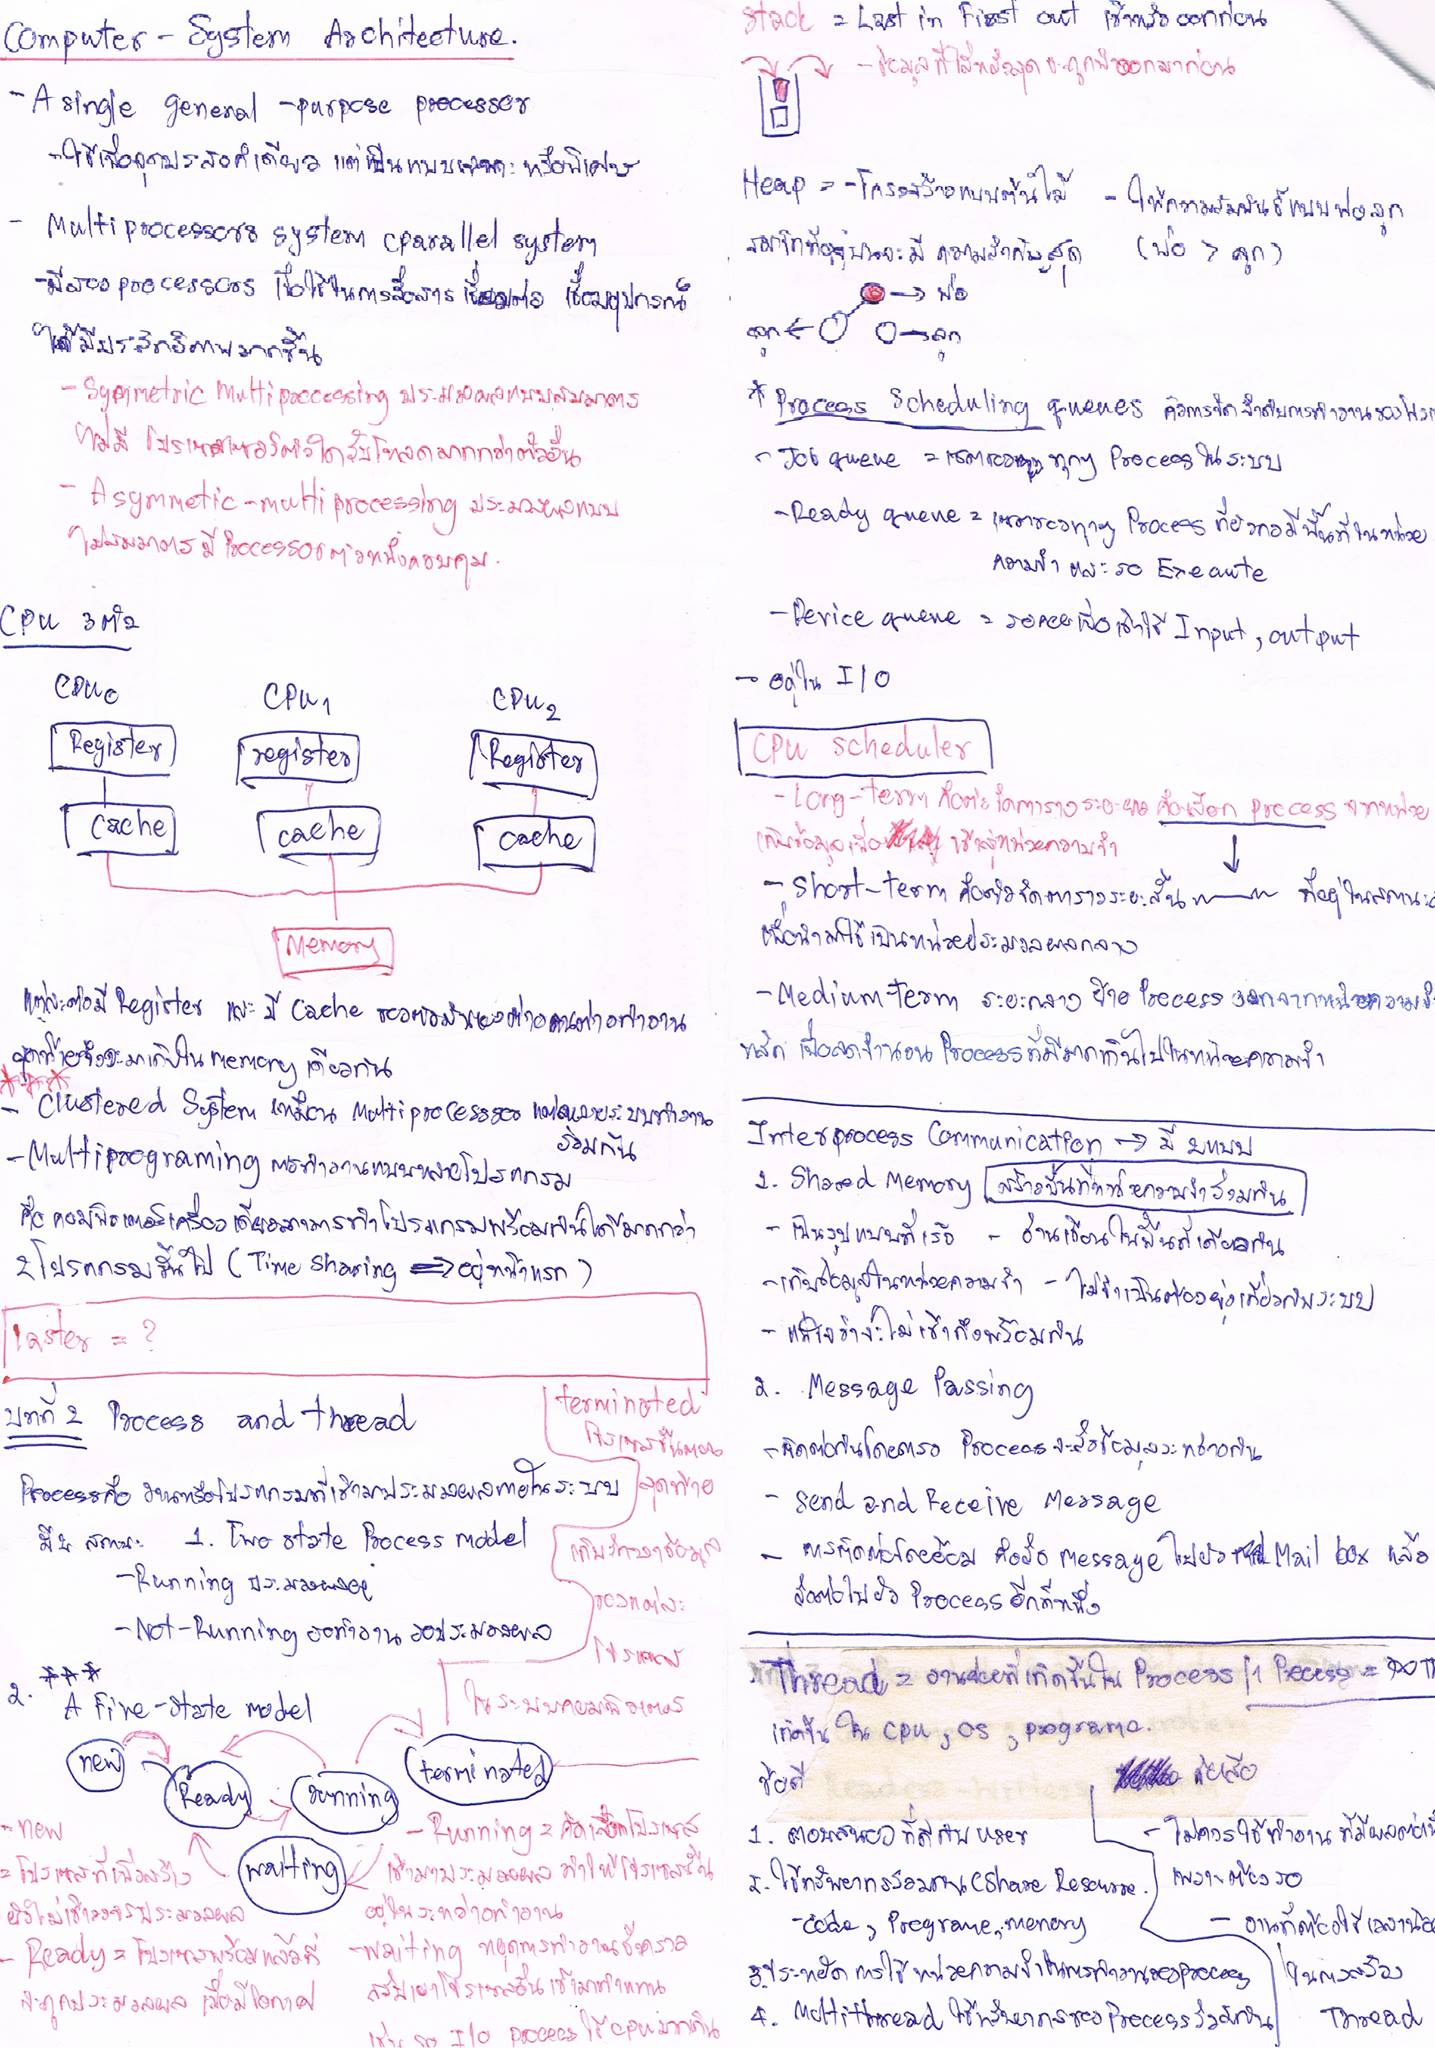 Computer - System Architecture.
- A single general - purpose processor
- ใช้เพื่อจุดประสงค์เดียว แต่เป็นแบบเฉพาะ หรือพิเศษ
- Multiprocessors system cparallel system
- มีสอง processors เพื่อใช้ในการสื่อสาร เชื่อมต่อ เชื่อมอุปกรณ์
ให้มีประสิทธิภาพมากขึ้น
- Symmetric Multiprocessing ประมวลผลแบบสมมาตร
ไม่มี โปรเซสเซอร์ตัวใดรับโหลดมากกว่าตัวอื่น
- Asymmetic - multiprocessing ประมวลผลแบบ
ไม่สมมาตร มี Processor ตัวหนึ่งควบคุม.
CPU 3 ตัว
CPU0 CPU1 CPU2
Register register Register
cache cache cache
Memory
แต่ละตัวมี Register และ มี Cache ของตัวมันเองต่างคนต่างทำงาน
สุดท้ายจึงจะมาเก็บใน memory เดียวกัน
***
- Clustered System เหมือน Multiprocessor แต่หลายระบบทำงาน
ร่วมกัน
- Multiprograming การทำงานแบบหลายโปรแกรม
คือ คอมพิวเตอร์เครื่องเดียวสามารถทำโปรแกรมพร้อมกันได้มากกว่า
2 โปรแกรมขึ้นไป (Time sharing => อยู่หน้าแรก)
laster = ?
บทที่ 2 Process and thread
Process คือ งานหรือโปรแกรมที่เข้ามาประมวลผลภายในระบบ
มี 2 สถานะ 1. Two state Process model
- Running ประมวลผลอยู่
- Not-Running รอทำงาน รอประมวลผล
terminated
โปรเซสขั้นตอน
สุดท้าย
เก็บรักษาข้อมูล
ของแต่ละ
โปรเซส
ในระบบคอมพิวเตอร์
2. *** A Five-state model
new Ready running terminated
waiting
- new
= โปรเซสที่เพิ่งสร้าง
ยังไม่เข้าวงจรประมวลผล
- Ready = โปรเซสพร้อมแล้วที่
จะถูกประมวลผล เมื่อมีโอกาส
- Running = คัดเลือกโปรเซส
เข้ามาประมวลผล ทำให้โปรเซสนั้น
อยู่ในระหว่างทำงาน
- waiting หยุดการทำงานชั่วคราว
สลับเอาโปรเซสอื่นเข้ามาทำแทน
เช่น รอ I/O process ใช้ cpu มากเกิน
Stack = Last in First out เข้าหลังออกก่อน
- ข้อมูลที่ใส่หลังสุดจะถูกนำออกมาก่อน
Heap = - โครงสร้างแบบต้นไม้ - ให้ความสัมพันธ์แบบพ่อลูก
สมาชิกที่อยู่บนจะมี ความสำคัญสุด (พ่อ > ลูก)
พ่อ
ลูก ลูก
* Process Scheduling queues คือการจัดลำดับการทำงานของ
- Job queue = เซตของทุกๆ Process ในระบบ
- Ready queue = เซตของทุกๆ Process ที่ยังคงมีพื้นที่ในหน่วย
ความจำ และ รอ Execute
- Device queue = รอคอยเพื่อเข้าใช้ Input, output
→ อยู่ใน I/O
CPU scheduler
- Long-term คือตัวจัดตารางระยะยาว คือเลือก process จากหน่วย
เก็บข้อมูลเพื่อ เข้าสู่หน่วยความจำ
- Short-term คือตัวจัดตารางระยะสั้น ที่อยู่ในสถานะ
เพื่อนำมาใช้เป็นหน่วยประมวลผลกลาง
- Medium-term ระยะกลาง ย้าย Process ออกจากหน่วยความจำ
หลัก เพื่อลดจำนวน Process ที่มีมากเกินไปในหน่วยความจำ
Interprocess Communication → มี 2 แบบ
1. Shared Memory สร้างพื้นที่หน่วยความจำร่วมกัน
- เป็นรูปแบบที่เร็ว - อ่านเขียนในพื้นที่เดียวกัน
- เก็บข้อมูลในหน่วยความจำ - ไม่จำเป็นต้องยุ่งเกี่ยวกับระบบ
- แน่ใจว่าจะไม่เข้าถึงพร้อมกัน
2. Message Passing
- ติดต่อกันโดยตรง Process จะส่งข้อมูลระหว่างกัน
- Send and Receive Message
- การติดต่อโดยอ้อม คือส่ง message ไปยัง Mail box แล้ว
ส่งต่อไปยัง Process อีกทีหนึ่ง
Thread = งานย่อยที่เกิดขึ้นใน Process / 1 Process =
เกิดขึ้นใน CPU, OS, programe.
ข้อดี ข้อเสีย
1. ตอบสนองที่ดีกับ user
2. ใช้ทรัพยากรร่วมกัน (Share Resource.
- code, Programe, memory
3. ประหยัดการใช้หน่วยความจำในการทำงานของ process
4. Multithread ใช้ทรัพยากรของ Process ร่วมกัน
- ไม่ควรใช้ทำงานที่มีผลต่อ
เพราะต้องรอ
- งานที่ต้องใช้เวลา
ในการสร้าง
Thread